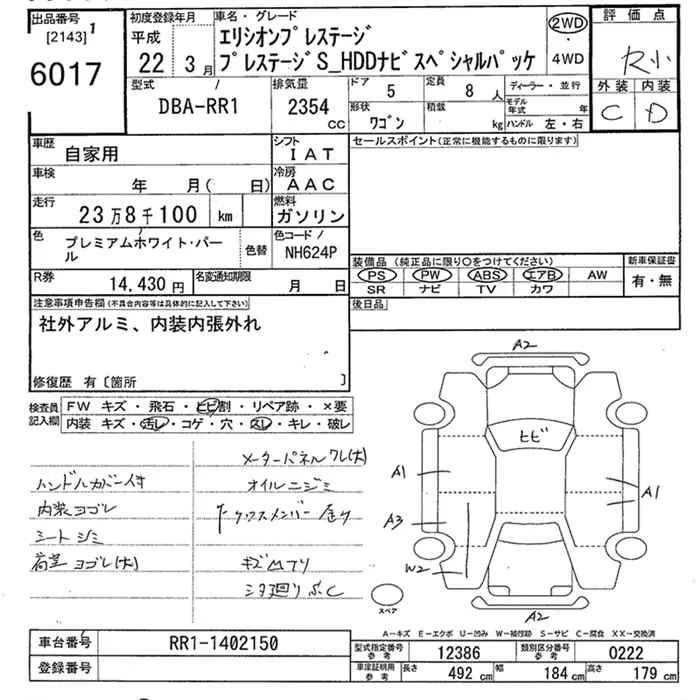 出品番号 [2143] 1
6017
初度登録年月 平成 22 3月
車名・グレード エリシオンプレステージ
プレステージS_HDDナビスペシャルパッケ
2WD ・ 4WD
評価点
R小
外装 内装
C D
型式 / DBA-RR1
排気量 2354 CC
ドア 5
定員 8人
形状 ワゴン
積載 kg
ディーラー・並行
モデル年式 年
ハンドル 左・右
車歴 自家用
シフト IAT
セールスポイント(正常に機能するものに限ります)
車検 年 月( 日)
冷房 AAC
走行 23万8千100 km
燃料 ガソリン
色 プレミアムホワイト・パール
色替
色コード / NH624P
装備品 (純正品に限り○をつけてください)
PS PW ABS エアB AW
SR ナビ TV カワ
新車保証書 有・無
R券 14,430円
名変通知期限 月 日
後日品
注意事項申告欄(不具合内容等は具体的に記入して下さい)
社外アルミ、内装内張外れ
修復歴 有〔箇所 〕
検査員記入欄
FW キズ・飛石・ヒビ割・リペア跡・×要
内装 キズ・汚レ・コゲ・穴・スレ・キレ・破レ
メーターパネルワレ(大)
ハンドルカバー付
オイルニジミ
内装ヨゴレ
シートシミ
荷室ヨゴレ(大)
キズ凹アリ
シタ廻りふC
A2
ヒビ
A1
A1
A3
W2
スペア
A2
A-キズ E-エクボ U-凹み W-補修跡 S-サビ C-腐食 XX-交換済
車台番号 RR1-1402150
登録番号
型式指定番号 参考 12386
類別区分番号 参考 0222
車定証明用 参考 長さ 492 cm 幅 184 cm 高さ 179 cm